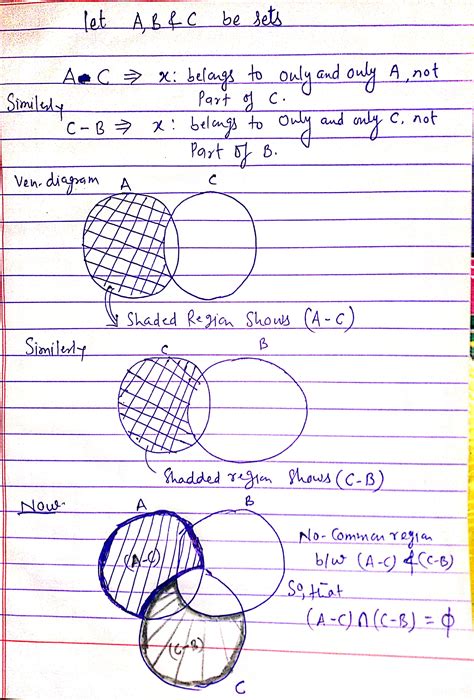 let A, B & C be sets
A - C ⇒ x : belongs to only and only A, not
Part of C.
Similerly
C - B ⇒ x : belongs to only and only C, not
Part of B.
Ven-diagram
A C
Shaded Region Shows (A-C)
Similerly
C B
Shadded region Shows (C-B)
Now-
A B
(A-C)
No-Common region
b/w (A-C) & (C-B)
So, that
(A-C) ∩ (C-B) = ϕ
(C-B)
C